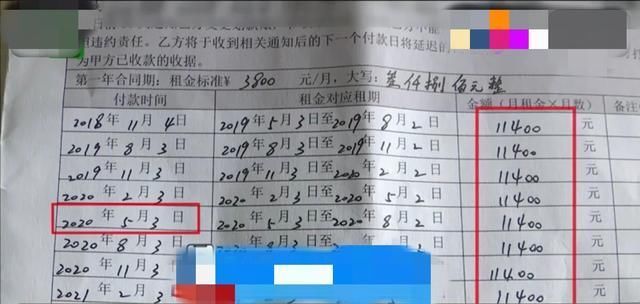 担违约责任。乙方将于收到相关通知后的下一个付款日将延迟的
为甲方已收款的收据。
第一年合同期：租金标准¥ 3800 元/月，大写：叁仟捌佰元整
付款时间 租金对应租期 金额（月租金×月数） 备注
2018年11月4日 2019年5月3日至2019年8月2日 11400 元
2019年8月3日 2019年8月3日至2019年11月2日 11400 元
2019年11月3日 2019年11月3日至2020年2月2日 11400 元
2020年2月3日 2020年2月3日至2020年5月2日 11400 元
2020年5月3日 2020年5月3日至2020年8月2日 11400 元
2020年8月3日 年8月3日至 11400 元
2020年11月3 11400 元
2021年2月3 11400 元